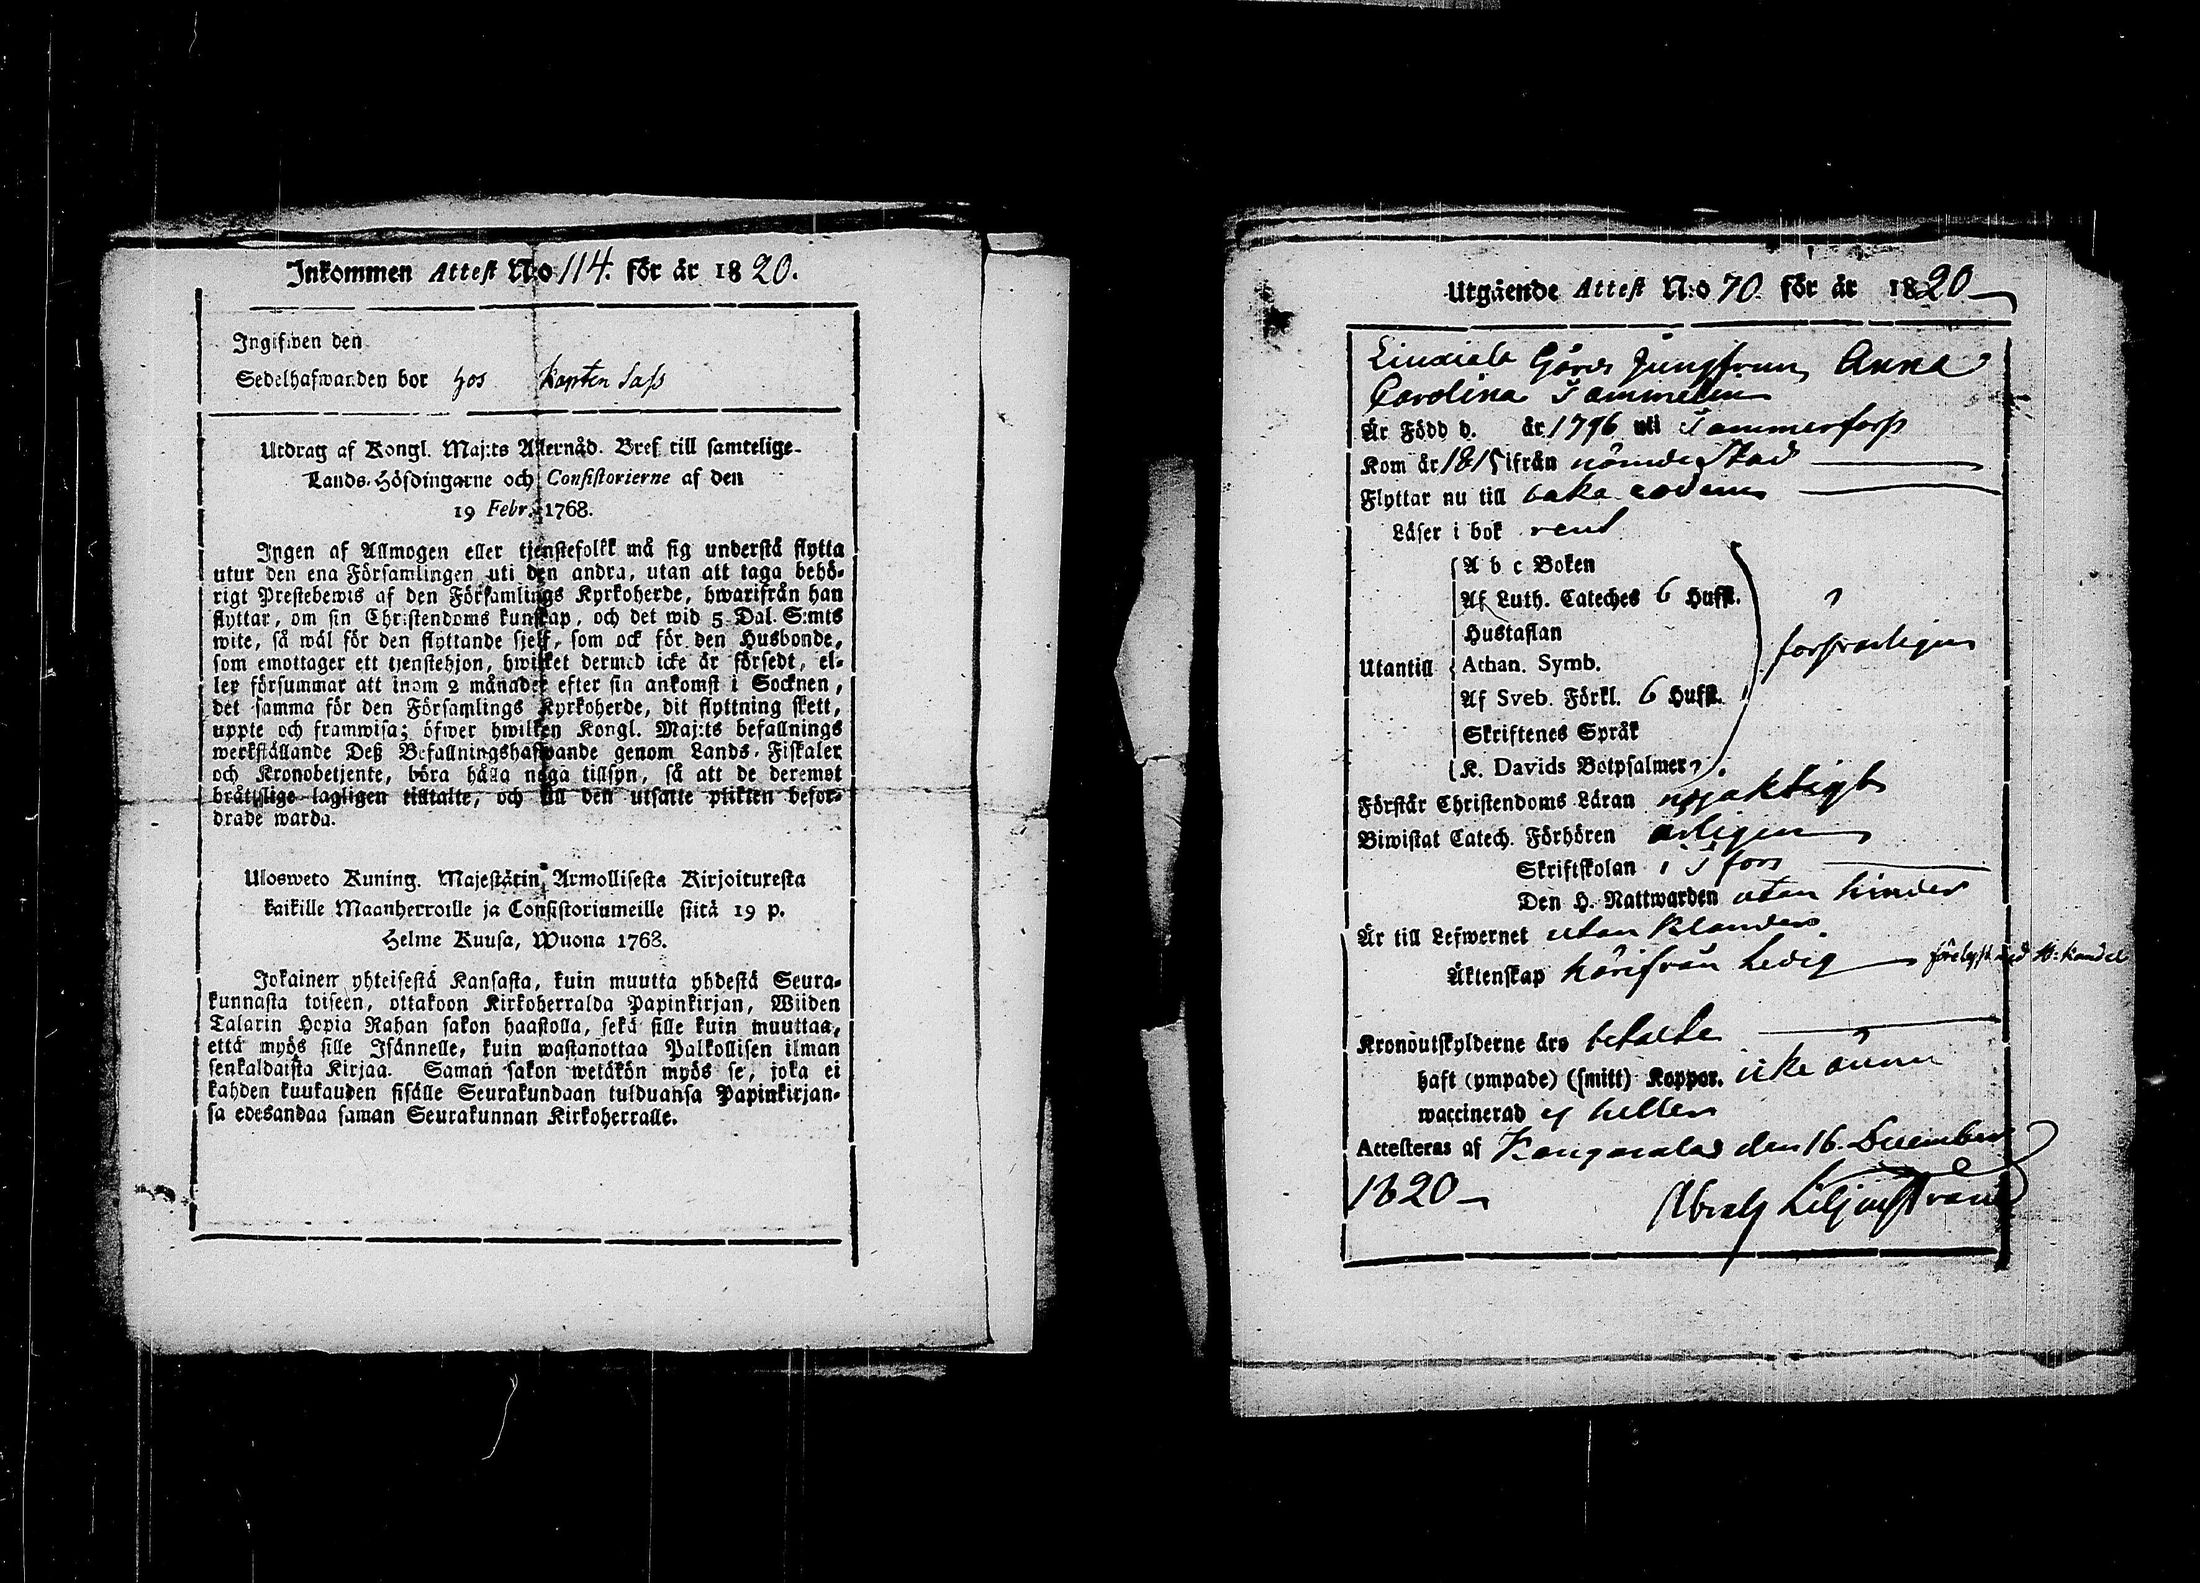 Inkommen Attest N:o 114. för år 1820.
Ingifwen den
Sedelhafwanden bor hos Kapten Sass
Utdrag af Kongl. Maj:ts Allernåd. Bref till samtelige
Lands-Höfdingarne och Consistorierne af den
19 Febr. 1768.
Ingen af Allmogen eller tjenstefolkt må sig understå flytta
utur den ena Församlingen uti den andra, utan att taga behö-
rigt Prestebewis af den Församlings Kyrkoherde, hwarifrån han
flyttar, om sin Christendoms kunskap, och det wid 5 Dal. S:mts
wite, så wäl för den flyttande sjelf, som ock för den Husbonde,
som emottager ett tjenstehjon, hwilket dermed icke är försedt, el-
ler försummar att inom 2 månader efter sin ankomst i Socknen,
det samma för den Församlings Kyrkoherde, dit flyttning skett,
uppte och framwisa; öfwer hwilken Kongl. Maj:ts befallnings
werkställande Deß Befallningshafwande genom Lands-Fiskaler
och Kronobetjente, böra hålla noga tillsyn, så att de deremot
bråttslige lagligen tilltalte, och till den utsatte plikten befor-
drade warda.
Ulosweto Kuning. Majestätin Armollisesta Kirjoituxesta
kaikille Maanherroille ja Consistoriumeille siitä 19 p.
Helme Kuusa, Wuona 1768.
Jokainen yhteisestä Kansasta, kuin muutta yhdestä Seura-
kunnasta toiseen, ottakoon Kirkoherralda Papinkirjan, Wiiden
Talarin Hopia Rahan sakon haastolla, sekä sille kuin muuttaa,
että myös sille Isännelle, kuin wastanottaa Palkollisen ilman
senkaldaista Kirjaa. Saman sakon wetäkön myös se, joka ei
kahden kuukauden sisälle Seurakundaan tulduansa Papinkirjan-
sa edesandaa saman Seurakunnan Kirkoherralle.
Utgående Attest N:o 70. för år 1820
Liuxiala Gårds Jungfrun Anna
Carolina Tammelin
Är Född d. år 1796 uti Tammerfors
Kom år 1815 ifrån nämde Stad
Flyttar nu till baka eodem
Läser i bok rent
A b c Boken
Af Luth. Cateches 6 Hufst.
Hustaflan
Utantill Athan. Symb. försvarligen
Af Sveb. Förkl. 6 Hufst.
Skriftenes Språk
K. Davids Botpsalmer
Förstår Christendoms Läran nöjaktigt
Biwistat Catech. Förhören årligen
Skriftskolan i T fors
Den H. Nattwarden utan hinder
Är till Lefwernet utan klander
Äktenskap härifrån ledig
Kronoutskylderne äro betalte
haft (ympade) (smitt) Koppor. icke ännu
waccinerad ej heller
Attesteras af Kangasala den 16. December
1820
Abrah Liljestrand